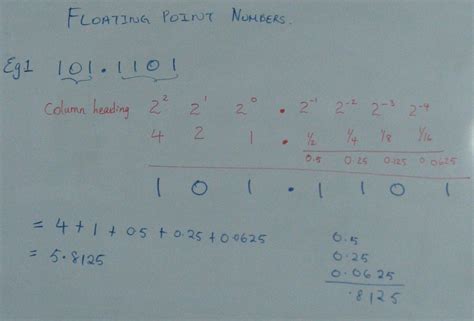 FLOATING POINT NUMBERS.
Eg1 101.1101
Column heading 2² 2¹ 2⁰ . 2⁻¹ 2⁻² 2⁻³ 2⁻⁴
4 2 1 . 1/2 1/4 1/8 1/16
0.5 0.25 0.125 0.0625
1 0 1 . 1 1 0 1
= 4 + 1 + 0.5 + 0.25 + 0.0625
= 5.8125
0.5
0.25
0.0625
.8125